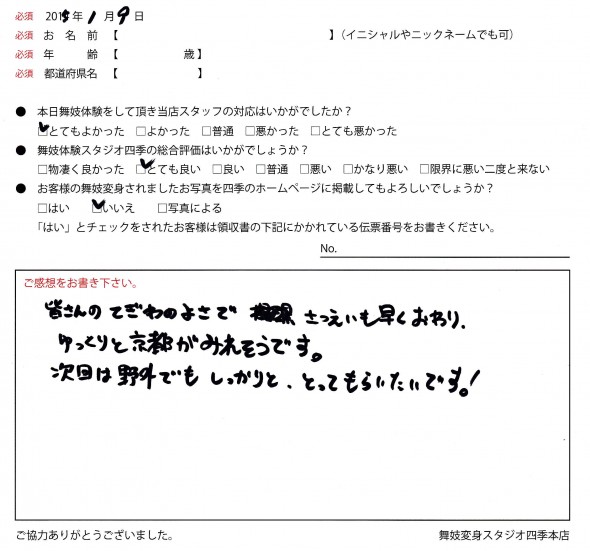 必須 2015年1月9日
必須 お 名 前【 】（イニシャルやニックネームでも可）
必須 年 齢【 歳】
必須 都道府県名【 】
● 本日舞妓体験をして頂き当店スタッフの対応はいかがでしたか？
☑とてもよかった □よかった □普通 □悪かった □とても悪かった
● 舞妓体験スタジオ四季の総合評価はいかがでしょうか？
□物凄く良かった ☑とても良い □良い □普通 □悪い □かなり悪い □限界に悪い二度と来ない
● お客様の舞妓変身されましたお写真を四季のホームページに掲載してもよろしいでしょうか？
□はい ☑いいえ □写真による
「はい」とチェックをされたお客様は領収書の下記にかかれている伝票番号をお書きください。
No.
ご感想をお書き下さい。
皆さんの てぎわのよさで さつえいも早くおわり、
ゆっくりと京都がみれそうです。
次回は野外でも しっかりと、とってもらいたいです。！
ご協力ありがとうございました。 舞妓変身スタジオ四季本店